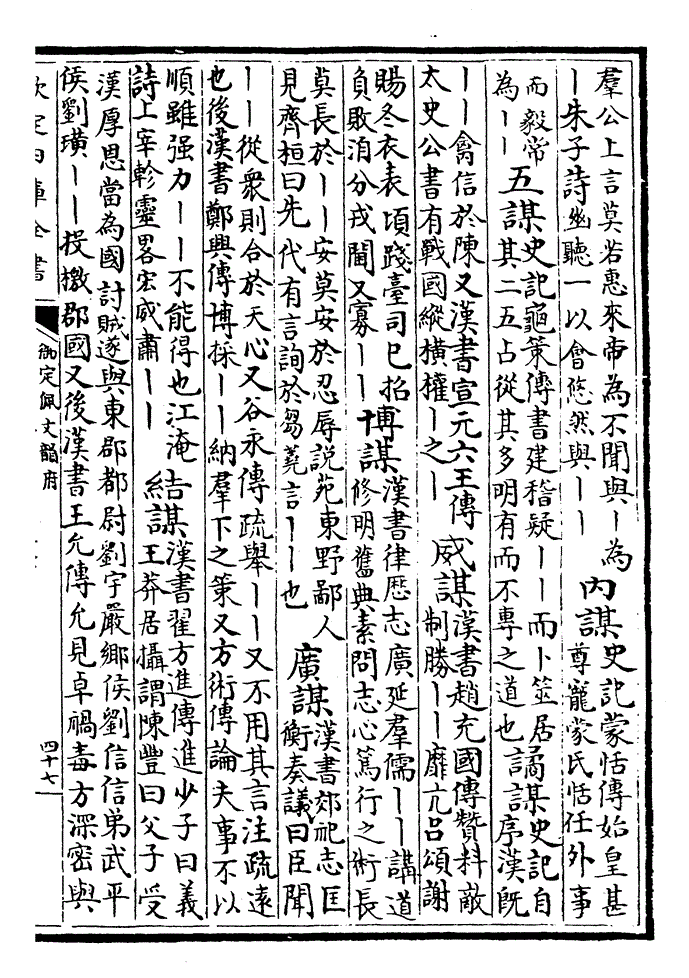 羣公上言莫若惠來帝為不聞與丨為
丨朱子詩幽聽一以會悠然與丨丨
內謀
史記蒙恬傳始皇甚
尊寵蒙氏恬任外事
而毅帝
為丨丨
五謀
史記龜策傳書建稽疑丨丨而卜筮居
其二五占從其多明有而不專之道也
譎謀
史記自
序漢既
丨丨禽信於陳又漢書宣元六王傳
太史公書有戰國縱橫權丨之丨
威謀
漢書趙充國傳贊料敵
制勝丨丨靡亢呂頌謝
賜冬衣表頃踐臺司已招
負敗洎分戎閫又寡丨丨
博謀
漢書律歴志廣延羣儒丨丨講道
修明舊典素問志心篤行之術長
莫長於丨丨安莫安於忍辱說苑東野鄙人
見齊桓曰先代有言詢於芻蕘言丨丨也
廣謀
漢書郊祀志匡
衡奏議曰臣聞
丨丨從衆則合於天心又谷永傳疏舉丨丨又不用其言注疏遠
也後漢書鄭興傳博採丨丨納羣下之策又方術傳論夫事不以
順雖强力丨丨不能得也江淹
詩上宰軫靈畧宏威肅丨丨
結謀
漢書翟方進傳進少子曰義
王莽居攝謂陳豐曰父子受
漢厚恩當為國討賊遂與東郡都尉劉宇嚴鄉侯劉信信弟武平
侯劉璜丨丨投檄郡國又後漢書王允傳允見卓禍毒方深密與
欽定四庫全書
御定佩文韻府
四十七